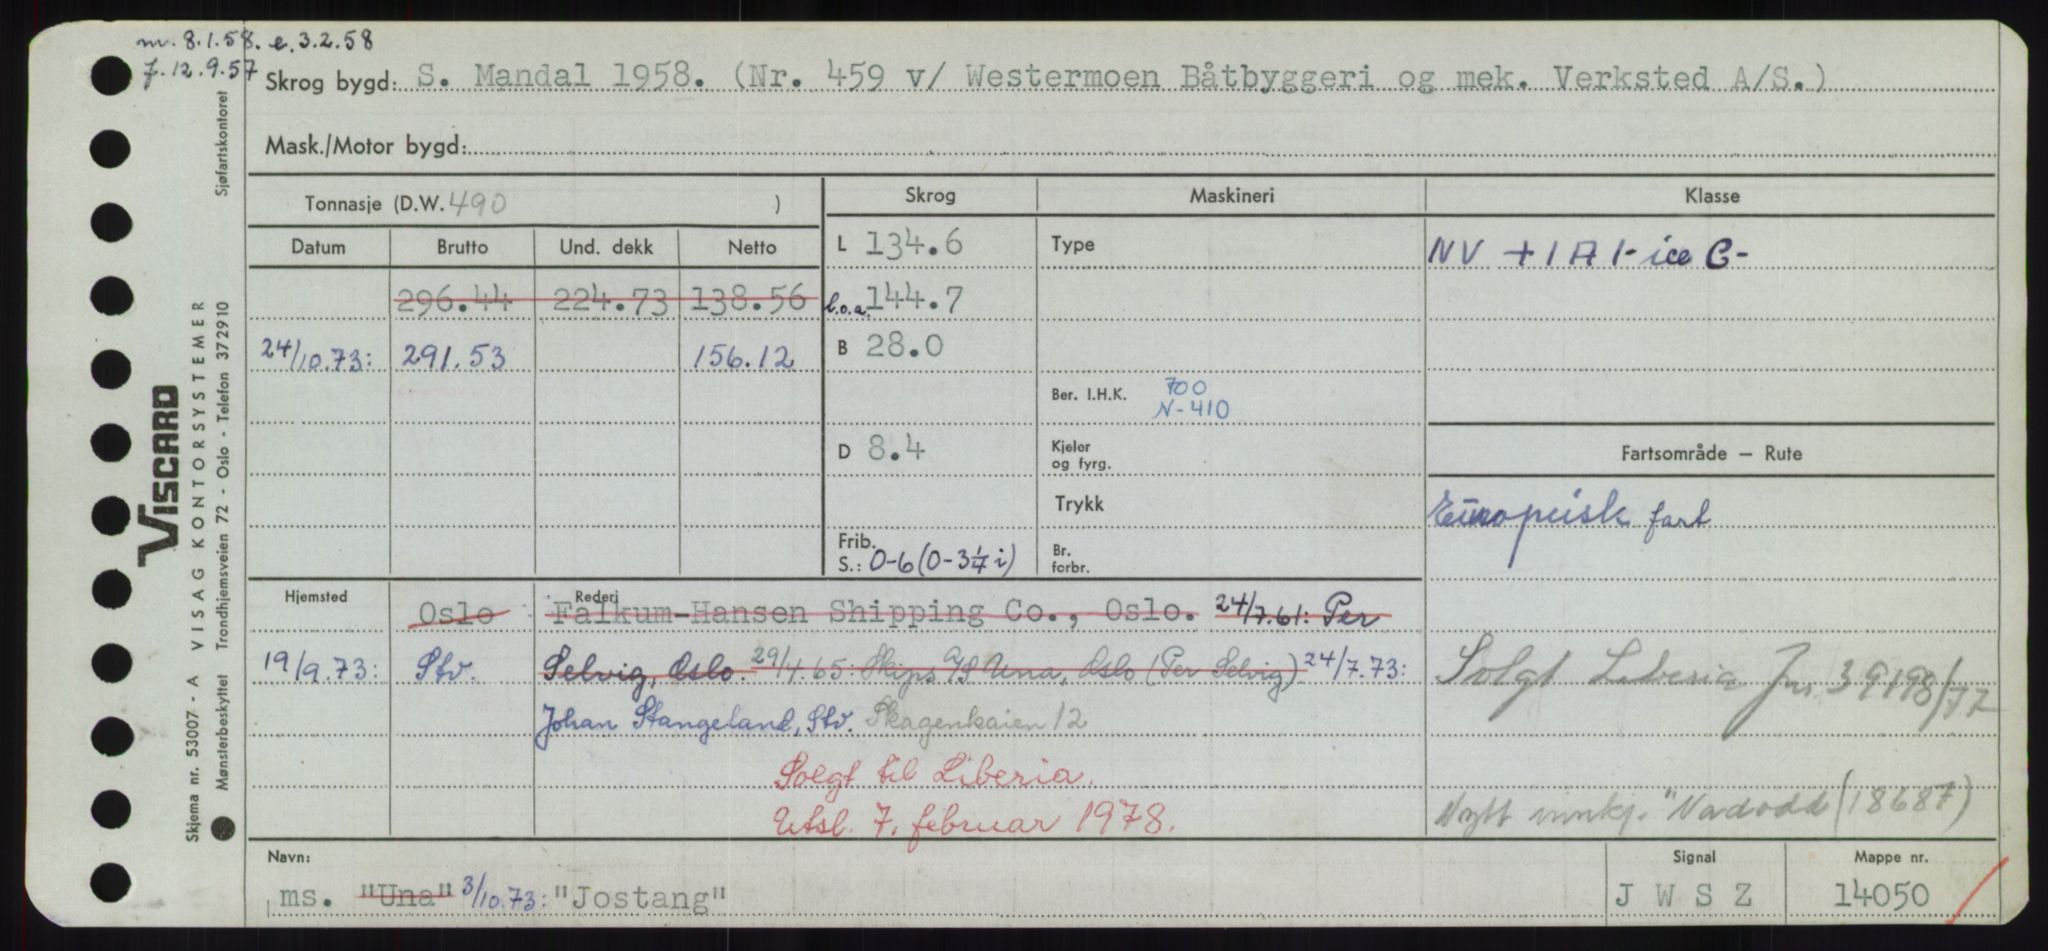 m. 8.1.58. e. 3.2.58
f. 12.9.57
Skrog bygd: S. Mandal 1958. (Nr. 459 v/ Westermoen Båtbyggeri og mek. Verksted A/S.)
Mask./Motor bygd:
Tonnasje (D.W. 490 )
Skrog Maskineri Klasse
Datum Brutto Und. dekk Netto
L 134.6 Type NV +1A1- ice C-
296.44 224.73 138.56 l.o.a. 144.7
24/10.73: 291.53 156.12 B 28.0
Ber. I.H.K. 700
N-410
D 8.4 Kjeler
og fyrg.
Fartsområde — Rute
Trykk
Europeisk fart
Frib.
S.: 0-6 (0-3 i) Br.
forbr.
Hjemsted Rederi
Oslo Falkum-Hansen Shipping Co., Oslo. 24/7.61: Per
19/9.73: Stv. Selvig, Oslo. 29/4.65: Skips A/S Una, Oslo (Per Selvig) 24/7.73:
Johan Stangeland, Stv. Skagenkaien 12
Solgt Liberia Jnr. 39198/77
Solgt til Liberia.
Utsl. 7. februar 1978.
Nytt innkj. "Nadodd (18687)
Navn: Signal Mappe nr.
ms. "Una" 3/10.73: "Jostang" J W S Z 14050
VISCARD
Skjema nr. 53007 - A VISAG KONTORSYSTEMER
Mønsterbeskyttet Trondhjemsveien 72 - Oslo - Telefon 372910
Sjøfartskontoret